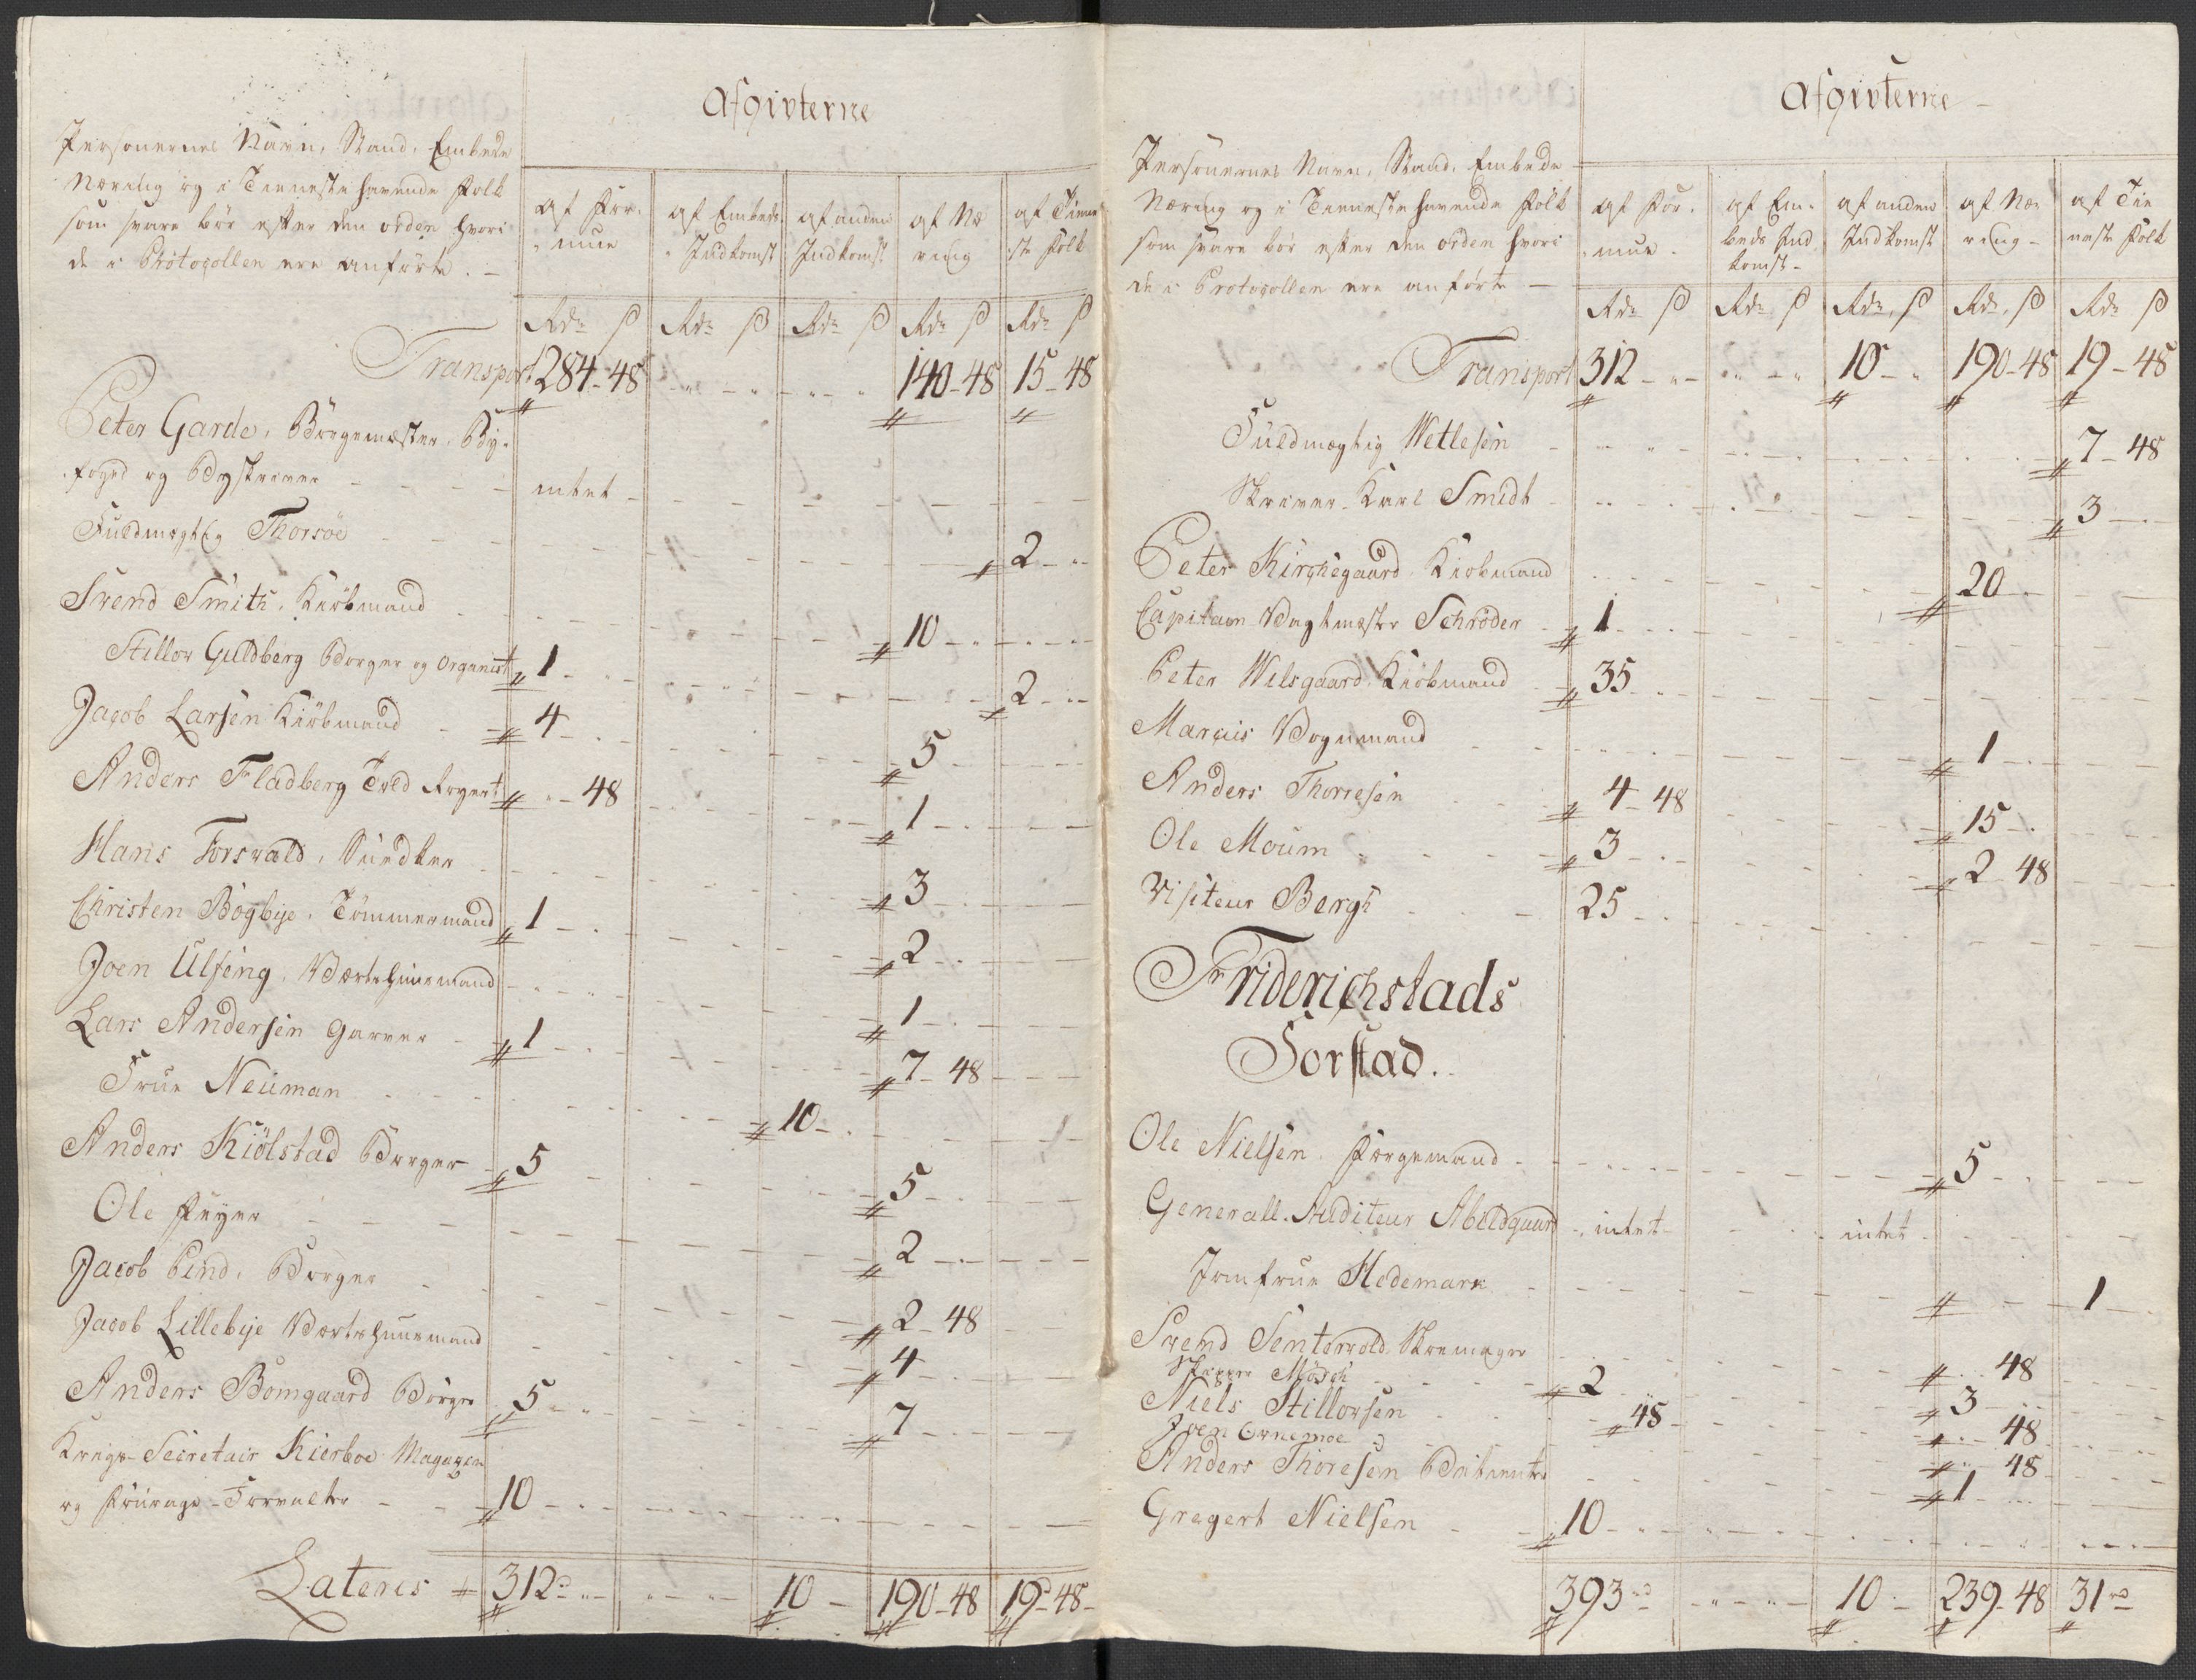 Afgivterne
Personernes Navn, Stand, Embede
Næring og i Tieneste havende Folk
som svare bør efter den orden hvori
de i Protocollen ere anførte. –
af For- mue | af Embeds Indkomst | af anden Indkomst | af Næ ring | af Tiene ste Folk
Rdr ß | Rdr ß | Rdr ß | Rdr ß | Rdr ß
Transport 284 - 48 140 - 48 15 - 48
Peter Garde, Borgemester, By-
foged og Byskriver intet
Fuldmægtig Thorsøe 2
Svend Smith, Kiøbmand 10
Stillov Guldberg Borger og Organist 1 2
Jacob Larsen Kiøbmand 4 5
Anders Fladberg Told 48 1
Hans Forsvald, Snedker 3
Christen Bogbye, Tømmermand 1 2
Joen Ulfeng, Vertshuusmand 1
Lars Andersen Garver 1 7 - 48
Frue Neuman 10
Anders Kiølstad Borger 5 5
Ole Feyer 2
Jacob Lind, Borger 2 - 48
Jacob Lillebye Vertshuusmand 4
Anders Bomgaard Borger 5 7
Krigs-Secretair Kierboe Magazin
og Fourage-Forvalter 10
Lateris 312 10 190 - 48 19 - 48
Afgivterne
Personernes Navn, Stand, Embede
Næring og i Tieneste havende Folk
som svare bør efter den orden hvori
de i Protocollen ere anførte –
af For- mue | af Em- beds Ind komst | af anden Indkomst | af Næ- ring | af Tie neste Folk
Rdr ß | Rdr ß | Rdr ß | Rdr ß | Rdr ß
Transport 312 10 190 - 48 19 - 48
Fuldmægtig Wetlesen 7 - 48
Skriver Karl Smidt 3
Peter Kirchegaard Kiøbmand 20
Capitain Vagtmester Schrøder 1
Peter Welsgaard Kiøbmand 35
Marcus Vognmand 1
Anders Thorresen 4 - 48 15
Ole Moum 3 2 - 48
Visiteur Bergh 25
Friderichstads
Forstad.
Ole Nielsen Færgemand 5
Generall-Auditeur Abildgaard intet intet
Jomfrue Hedemark 1
Svend Sentervold Skomager 48
Skipper Mørch 2 3
Niels Stillovsen 48 48
Joen Ornemoe 48
Anders Thoresen 1
Gregert Nielsen 10
393 10 239 - 48 31